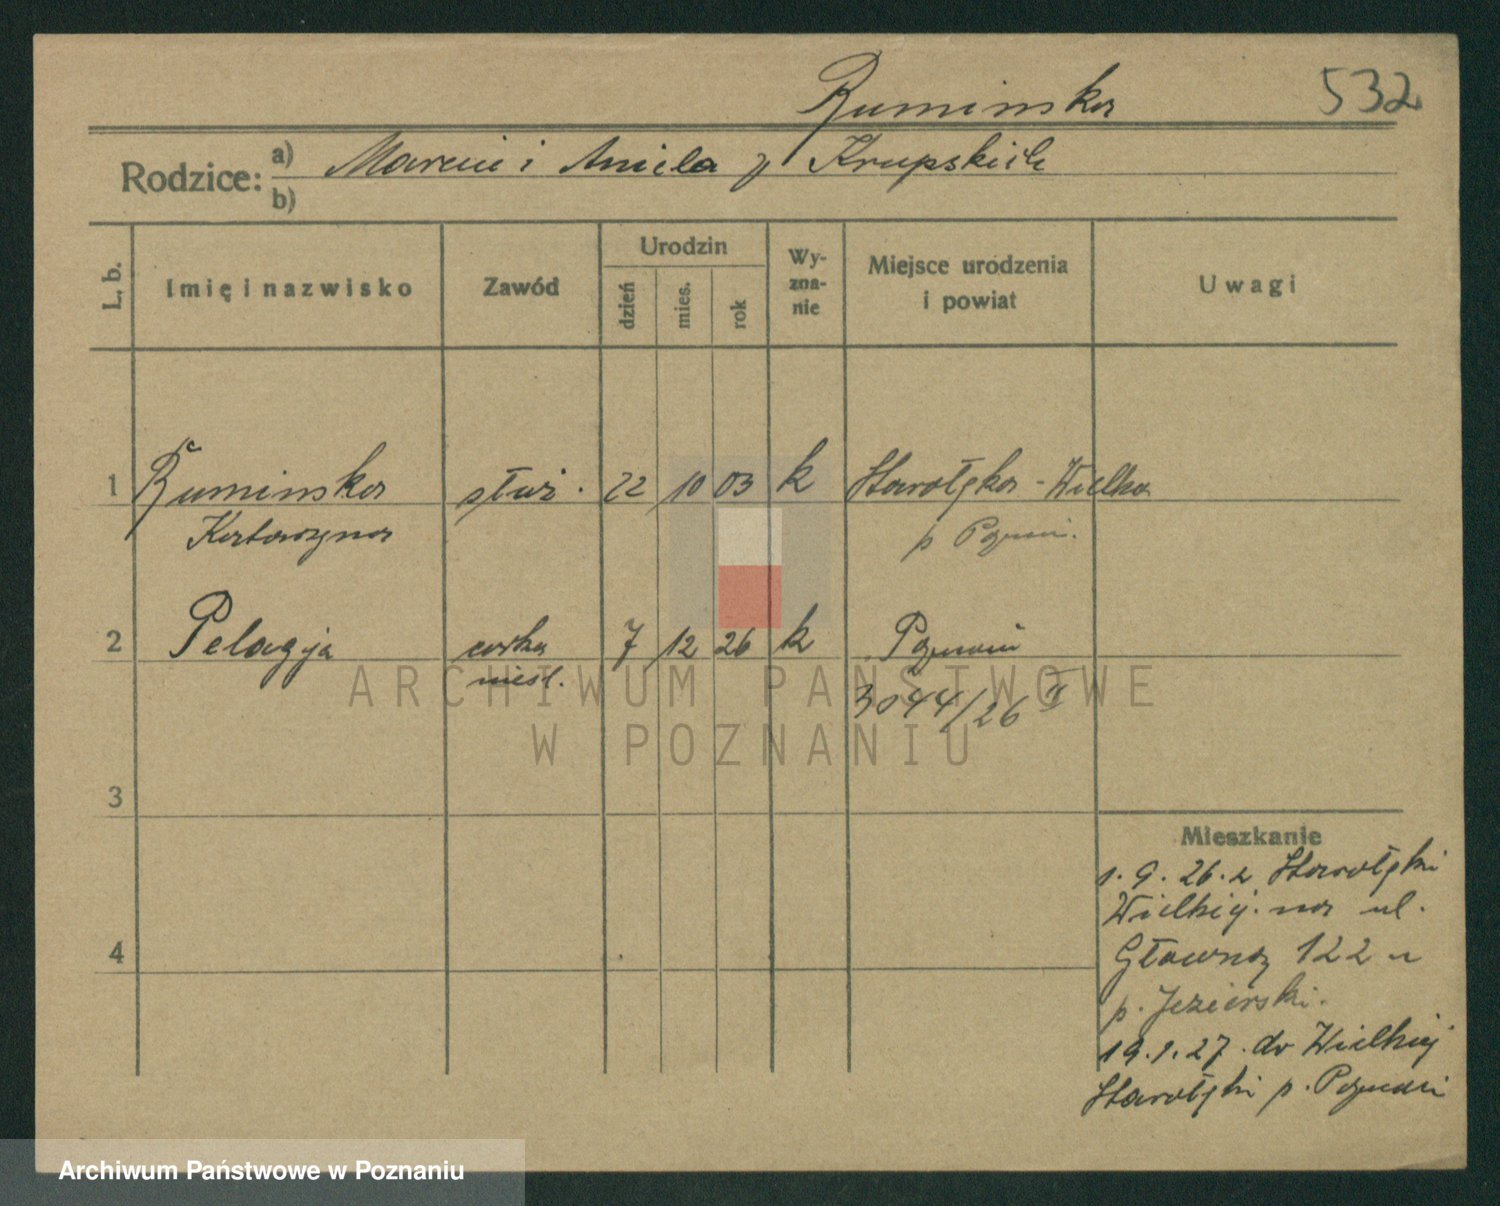 Ruminska
532
Rodzice: a) Marcin i Aniela z Krupskich
b)
L. b.
Imię i nazwisko
Zawód
Urodzin
dzień
mies.
rok
Wy-
zna-
nie
Miejsce urodzenia
i powiat
Uwagi
1 Ruminska służ. 22 10 03 k Starołęka - Wielka
Katarzyna p Poznań.
2 Pelagja corka 7 12 26 k Poznań
nieśl. 3044/26 II
3
4
Mieszkanie
1. 9. 26. z Starołęki
Wielkiej. na ul.
Głowną 122 u
p. Jezierski.
19.1.27. do Wielkiej
Starołęki p. Poznań
ARCHIWUM PAŃSTWOWE
W POZNANIU
Archiwum Państwowe w Poznaniu